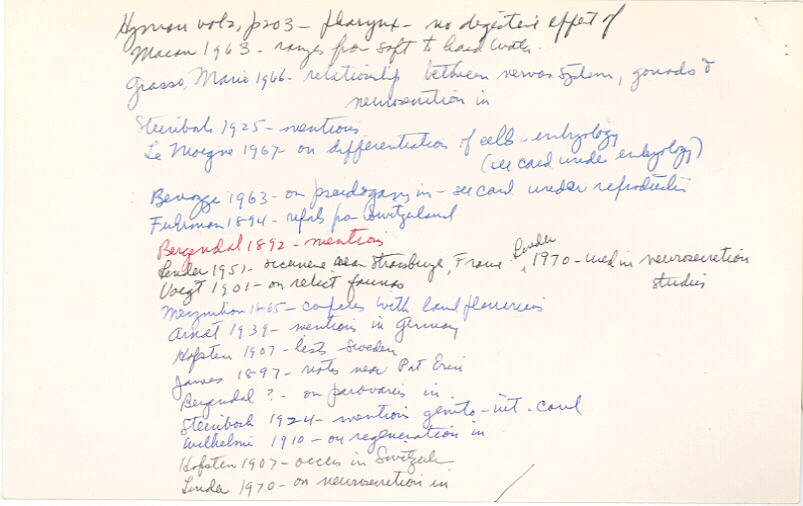 Hyman vol 2, p 203 - pharynx - no digestive effect of
Macan 1963 - ranges from soft to hard water.
Grasso, Mario 1966 - relationship between nervous system, gonads &
neurosecretion in
Steinbock 1925 - mentions
Le Moigne 1967 - on differentiation of cells - embryology
(see card under embryology)
Benazzi 1963 - on pseudogamy in - see card under reproduction
Fuhrman 1894 - reports for Switzerland
Bergendal 1892 - mentions
Lender 1951 - occurence near Strasbourg, France. Lender, 1970 - used in neurosecretion
studies
Voigt 1901 - on relict faunas
1865 - compares with land planarians
Arndt 1939 - mentions in Germany
Hofsten 1907 - lists Sweden
James 1897 - notes near Port Erin
Bergendal ? - on parovaries in
Steinbock 1924 - mention genito-int. canal
Wilhelmi 1910 - on regeneration in
Hofsten 1907 - occurs in
Lender 1970 - on neurosecretion in